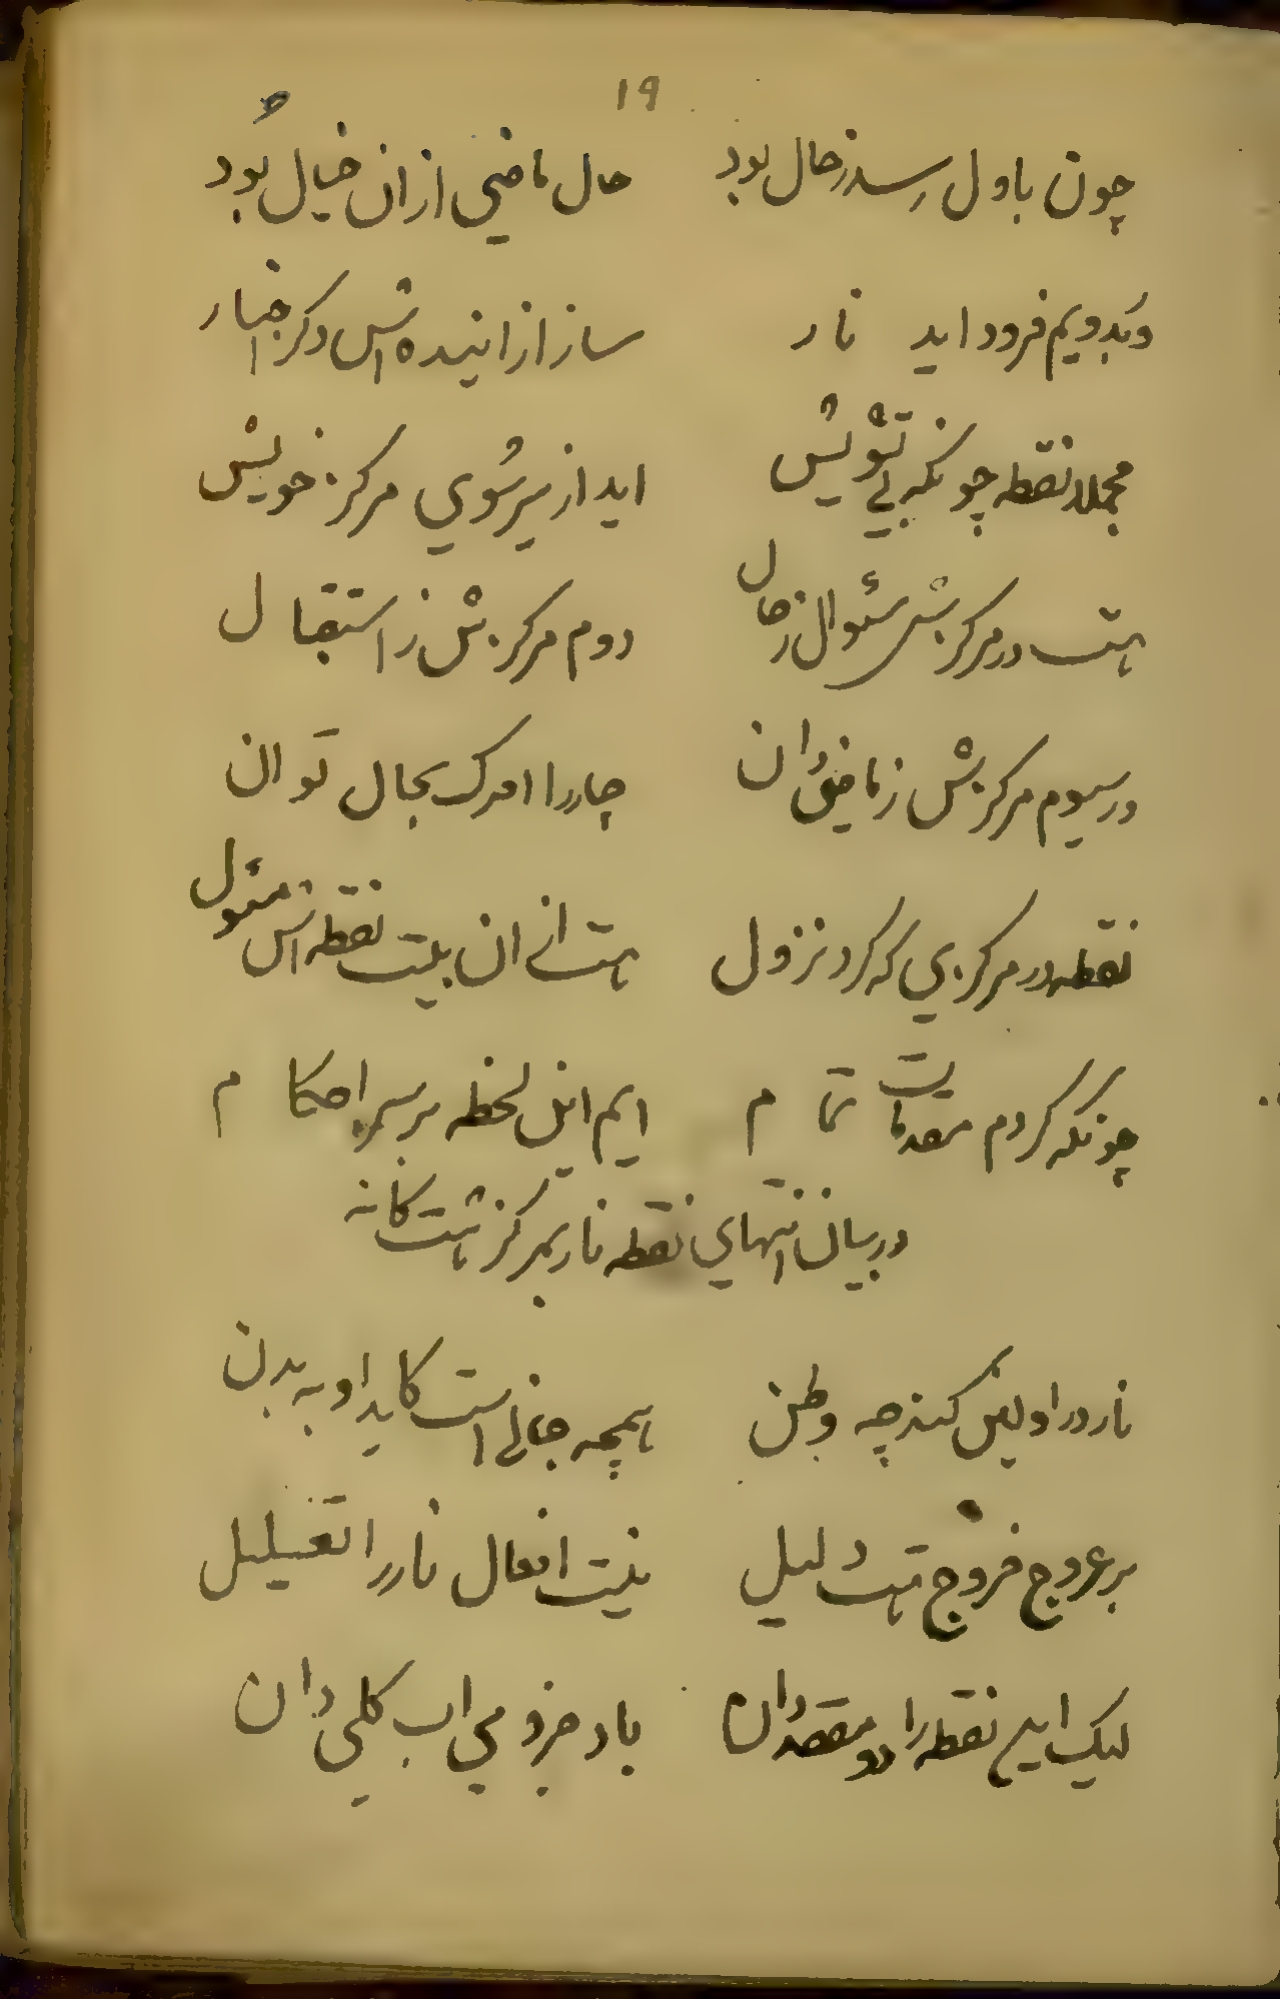 ۱۹
چون باول رسد زحال بود حال ماضی از ان خیال بود
وبدویم فرود اید نار ساز از اینده اش دکر اخبار
مجملا نقطه چونکه بی تشویش اید از سیر سُوی مرکز خویش
هست در مرکزش سئوال زحال دوم مرکزش ز استقبال
در سیوم مرکزش ز ماضی دان چار را امرک بحال توان
نقطه در مرکزی که کرد نزول هست از ان بیت نقطه اش مسئول
چونکه کردم مقدمات تمام ایم این لحظه بر سر احکام
در بیان انتهای نقطه نار بمرکز هشت کانه
نار در اولین کند چه وطن همچه جانی است کاید او به بدن
بر عروج فروج هست دلیل نیست افعال نار را تعسیلیل
لیک این نقطه را دو مقصد دان باد جزو می اب کلی دان